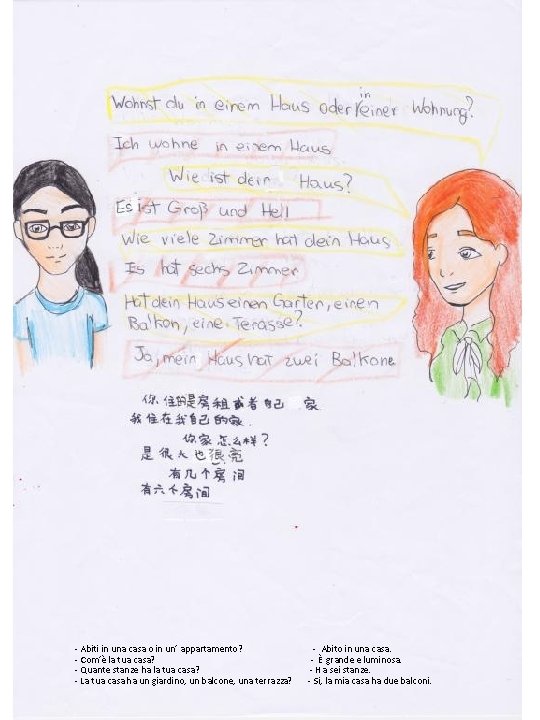 Wohnst du in einem Haus oder in einer Wohnung?
Ich wohne in einem Haus
Wie ist dein Haus?
Es ist Groß und Hell
Wie viele Zimmer hat dein Haus
Es hat sechs Zimmer
Hat dein Haus einen Garten, einen
Balkon, eine Terasse?
Ja, mein Haus hat zwei Balkone
你住的是房租或者自己 家
我住在我自己的家.
你家怎么样?
是很大也很亮
有几个房间
有六个房间
- Abiti in una casa o in un' appartamento? - Abito in una casa.
- Com'è la tua casa? - È grande e luminosa.
- Quante stanze ha la tua casa? - Ha sei stanze.
- La tua casa ha un giardino, un balcone, una terrazza? - Si, la mia casa ha due balconi.